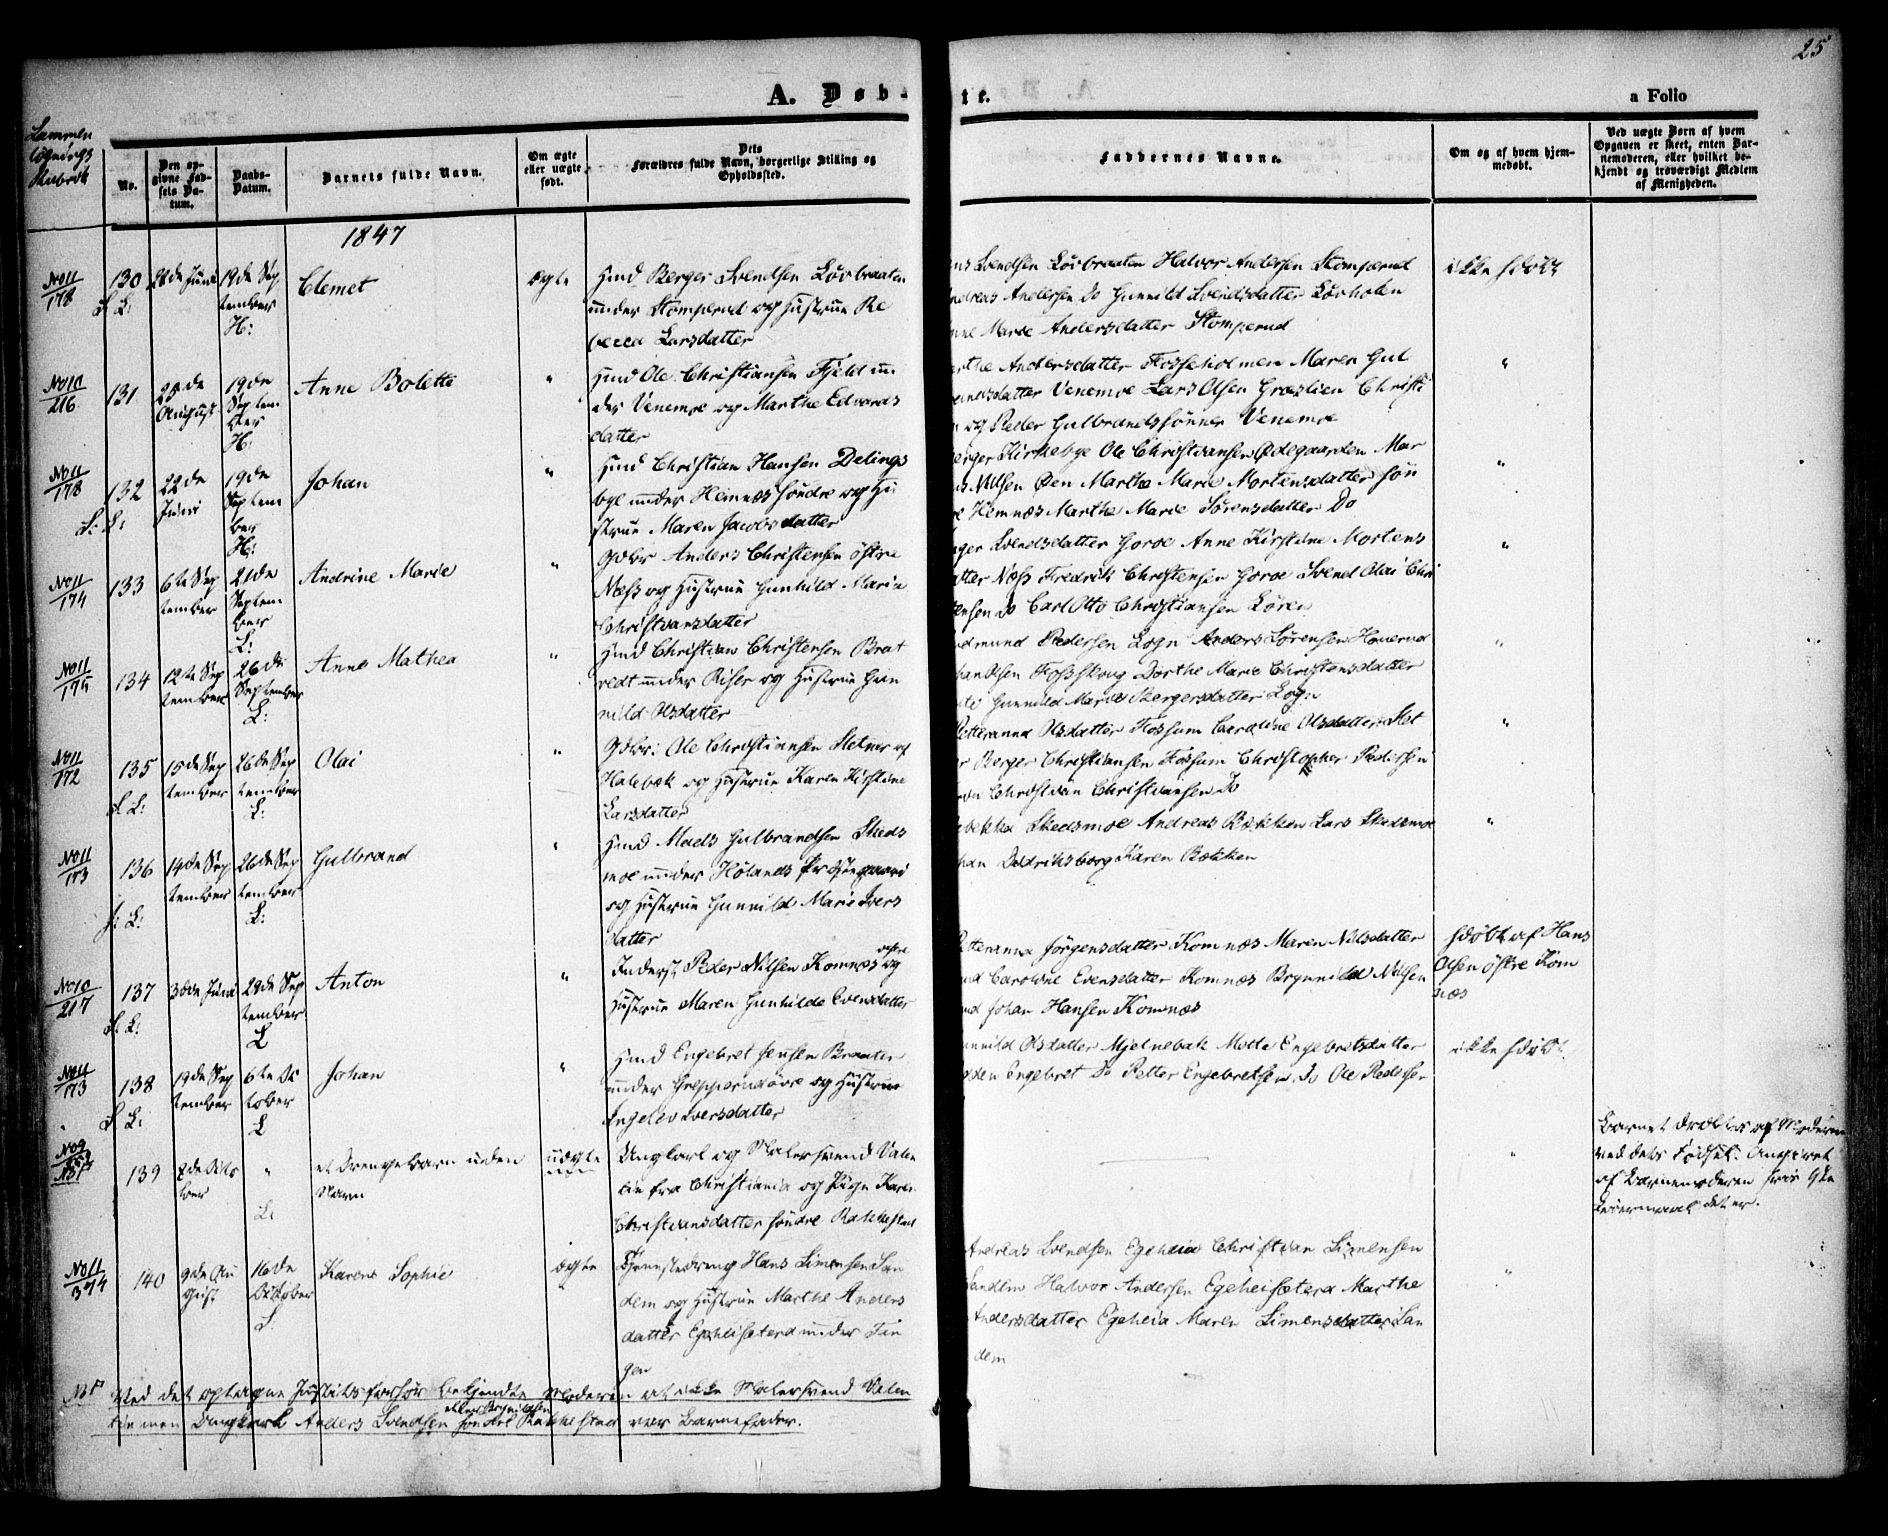 25
A. Døb-
te.
a Folio
No.
Den opgivne Fødsels Datum.
Daabs-Datum.
Barnets fulde Navn.
Om ægte eller uægte født.
Dets Forældres fulde Navn, borgerlige Stilling og Opholdssted.
Faddernes Navne.
Om og af hvem hjemmedøbt.
Ved uægte Børn af hvem Opgaven er skeet, enten Barnemoderen, eller hvilket bekjendt og troværdigt Medlem af Menigheden.
1847
No 11
178
130
19de Sep
tember
H:
Clemet
ægte
Hmd Berger Svendsen Løvbraaten
under Stomperud og Hustrue Re
becca Larsdatter
Svendsen Løvbraaten Halvor Andersen Stomperud
Andersen Do Gunnild Svendsdatter Løvholen
Marie Andersdatter Stomperud
ikke hdøbt
No 10
216
131
25de
August
19de
Septem
ber
H:
Anne Bolette
"
Hmd Ole Christiansen Fjeld un
der Venemoe og Marthe Edvards
datter
Andersdatter Fosseholmen Maren Gul
Venemoe Lars Olsen Græslien Christi
og Peder Gulbrandssønner Venemoe
"
No 11
178
132
22de
Juni
19de
Septem
ber
H:
Johan
"
Hmd Christian Hansen Delings
bye under Hemnæs søndre og Hu
strue Maren Jacobsdatter
Kirkebye Ole Christiansen Ødegaarden Mar
Nilsen Øen Marthe Marie Mortensdatter søn
Hemnæs Marthe Marie Sørensdatter Do
"
No 11
174
133
6te Sep
tember
21de
Septem
ber
L:
Andrine Marie
"
Gdbr Anders Christensen østre
Næss og Hustrue Gunhild Marie
Christiansdatter
Svendsdatter Goroe Anne Kirstine Mortens
Næss Fredrik Christensen Goroe Svend Olai Chri
Do Carl Otto Christiansen Løren
"
No 11
175
134
12te Sep
tember
26de
September
L:
Anne Mathea
"
Hmd Christian Christensen Brat
vedt under Riser og Hustrue Gun
nild Olsdatter
Pedersen Logn Anders Sørensen Haverud
Fossskoug Dorthe Marie Christensdatter
Gunnild Marie Bergersdatter Logn
"
No 11
172
135
15de Sep
tember
26de Sep
tember
L:
Olai
"
Gdbr: Ole Christiansen Sletner af
Halebæk og Hustrue Karen Kirstine
Larsdatter
Olsdatter Fossum Caroline Olsdatter Slet
Berger Christiansen Fossum Christopher Pedersen
Christian Christiansen Do
"
No 11
173
136
14de Sep
tember
26de Sep
tember
L:
Gulbrand
"
Hmd Mads Gulbrandsen Skeds
moe under Hølands Præstegaard
og Hustrue Gunnild Marie Ivers
datter
Skedsmoe Andreas Bækken Lars Skedsmoe
Karen Bækken
"
No 10
217
137
30de Juni
29de Sep
tember
L
Anton
"
Inderst Peder Nilsen Komnæs østre og
Hustrue Maren Gunhilde Evensdatter
Jørgensdatter Komnæs Maren Nilsdatter
Caroline Evensdatter Komnæs Brynild Nilsen
Johan Hansen Komnæs
hdøbt af Hans
Olsen østre Kom
næs
No 11
173
138
19de Sep
tember
6te Oc
tober
L
Johan
"
Hmd Engebret Jensen Braaten
under Grepperud øvre og Hustrue
Ingelev Iversdatter
Olsdatter Mjelnebak Mette Engebretsdatter
Engebret Do Petter Engebretsen Do Ole Pedersen
ikke hdøbt.
No 9
139
2de Octo
ber
"
L:
et Drengebarn uden
Navn
uægte
Ungkarl og Malersvend Valen
tin fra Christiania og Pige Karen
Christiansdatter søndre Rakkestad
"
Barnet dræbtes af Moderen
ved dets Fødsel. Angivet
af Barnemoderen hvis 9de
Leiermaal det er.
No 11
374
140
9de Au
gust
16de
October
Karen Sophie
ægte
Tjenestedreng Hans Simensen San
dem og Hustrue Marthe Anders
datter Egeheisætera under Tan
gen
Andreas Svendsen Egeheia Christian Simensen
Sandem Halvor Andersen Egeheisætera Marthe
Andersdatter Egeheia Maren Simensdatter San
dem
"
Ved det optagne Justitsforhør bekjendte Moderen at ikke Malersvend Valen
tin men Ungkarl Anders Svendsen Rakkestad var Barnefader.